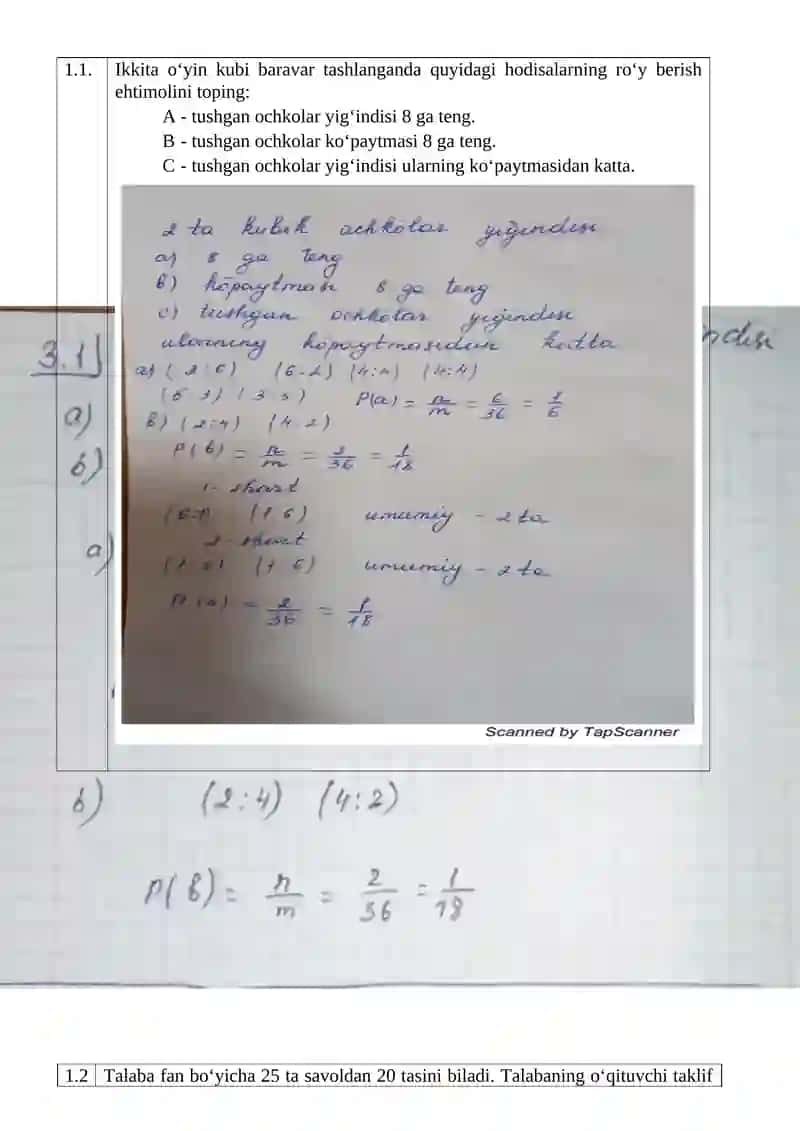 1.1. Ikkita o‘yin kubi baravar tashlanganda quyidagi hodisalarning ro‘y berish
ehtimolini toping:
A - tushgan ochkolar yig‘indisi 8 ga teng.
B - tushgan ochkolar ko‘paytmasi 8 ga teng.
C - tushgan ochkolar yig‘indisi ularning ko‘paytmasidan katta.
2 ta kubik ochkolar yig'indisi
a) 8 ga teng
b) ko'paytmasi 8 ga teng
c) tushgan ochkolar yig'indisi
ularning ko'paytmasidan katta
3.1
a) (2:6) (6:2) (4:4) (4:4)
P(a) = n/m = 6/36 = 1/6
a)
b) (2:4) (4:2)
b)
P(b) = n/m = 2/36 = 1/18
1- shart
(1 6) umumiy - 2 ta
2- shart
a)
(1 6) umumiy - 2 ta
= 2/36 = 1/18
Scanned by TapScanner
b) (2:4) (4:2)
P(b) = n/m = 2/36 = 1/18
1.2 Talaba fan bo‘yicha 25 ta savoldan 20 tasini biladi. Talabaning o‘qituvchi taklif